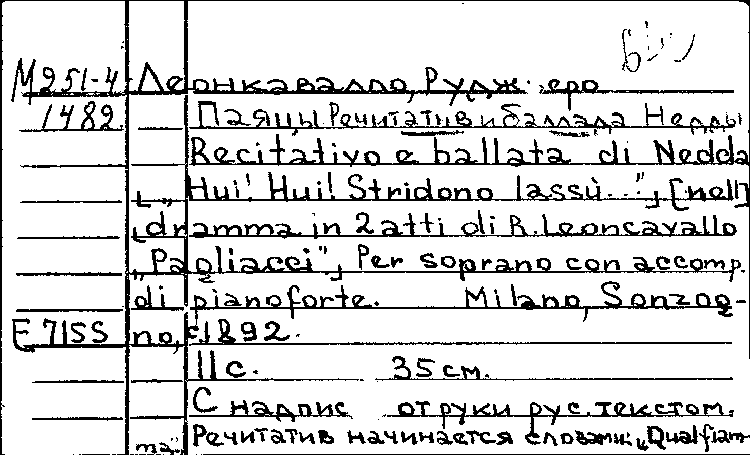 М251-4 Леонкавалло, Рудж еро
1482 Паяцы Речитатив и баллада Недды
Recitativo e ballata di Nedda
„Hui! Hui! Stridono lassù..."„ [nell]
„dramma in 2 atti di R. Leoncavallo
„Pagliacci"„ Per soprano con accomp.
di pianoforte. Milano, Sonzog-
E 715S no, c.1892.
11 с. 35 см.
С надпис от руки рус. текстом.
Речитатив начинается словами: „Qual fiam-
ma"